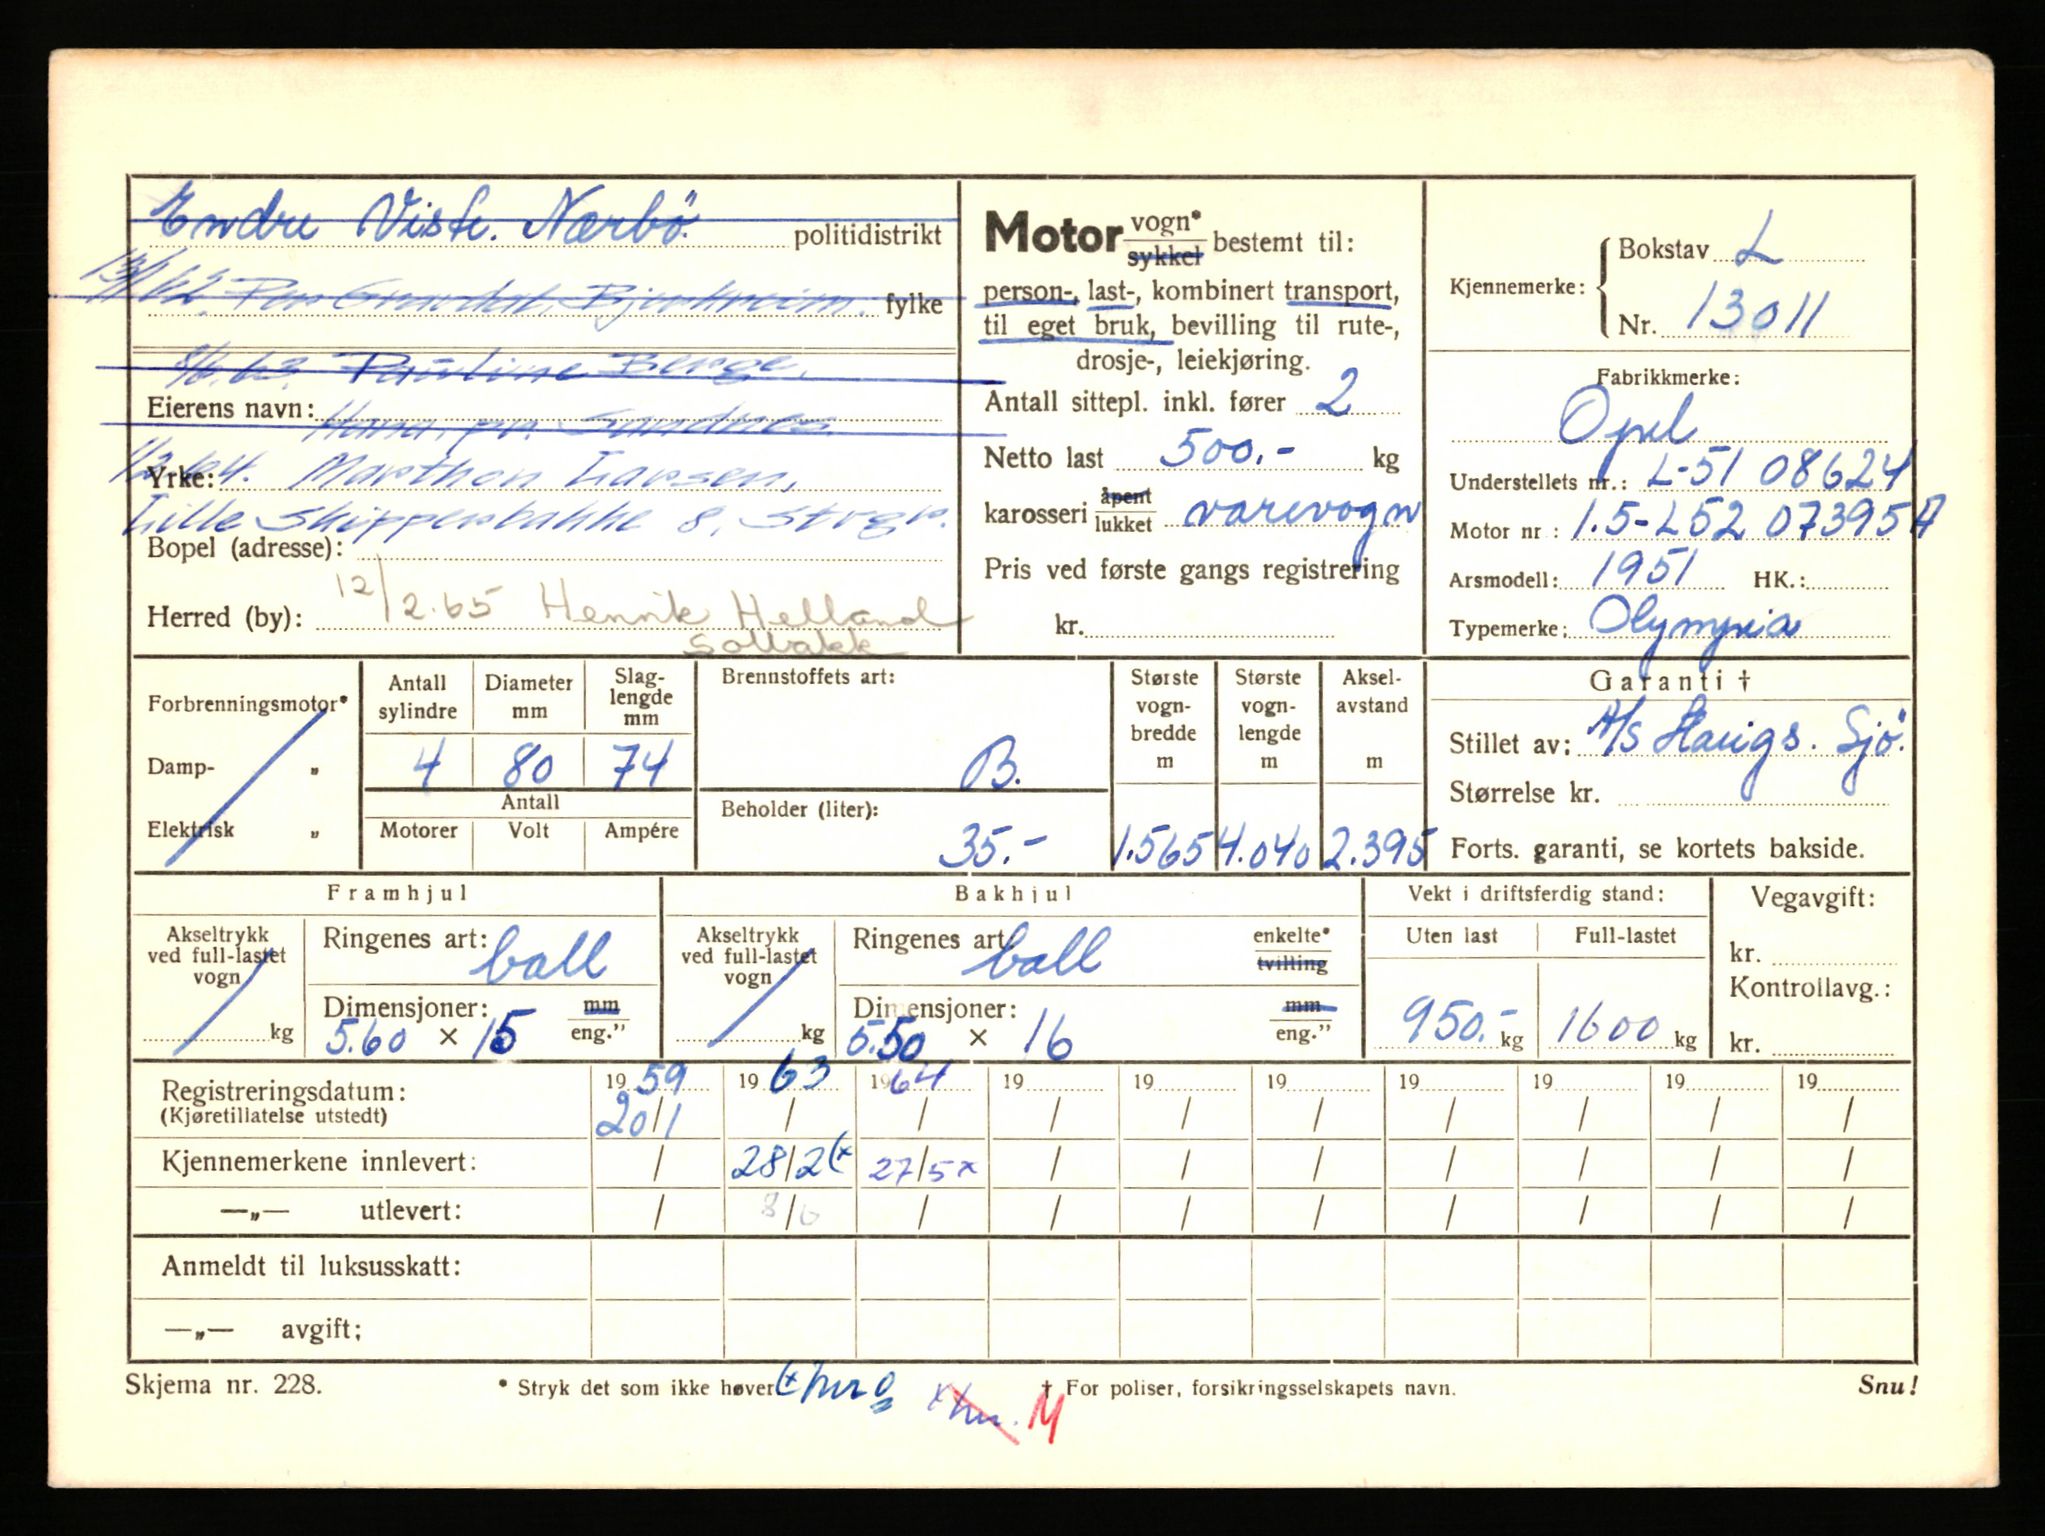 Endre Viste. Nærbö. politidistrikt
fylke
8/6.63. Pauline Berge,
Eierens navn: Hana, pr. Sandnes
1/2.64. Marthon Larsen,
Yrke:
Lille Skippersbakke 8, Stvgr.
Bopel (adresse):
12/2.65 Henrik Helland
Herred (by): Solbakk
Motor vogn* sykkel bestemt til:
person-, last-, kombinert transport,
til eget bruk, bevilling til rute-,
drosje-, leiekjøring.
Antall sittepl. inkl. fører 2
Netto last 500.- kg
karosseri åpent lukket varevogn
Pris ved første gangs registrering
kr.
Kjennemerke: Bokstav L
Nr. 13011
Fabrikkmerke:
Opel
Understellets nr.: L-51 08624
Motor nr : 1.5-L52 073957A
Arsmodell: 1951 HK.:
Typemerke: Olympia
Forbrenningsmotor*
Damp- „
Elektrisk „
Antall sylindre
4
Diameter mm
80
Slag-lengde mm
74
Antall
Motorer Volt Ampére
Brennstoffets art:
B.
Beholder (liter):
35.-
Største vogn-bredde m
1.565
Største vogn-lengde m
4.040
Aksel-avstand m
2.395
Garanti †
Stillet av: A/S Haugs. Sjö.
Størrelse kr.
Forts. garanti, se kortets bakside.
Framhjul
Akseltrykk ved full-lastet vogn
kg
Ringenes art: ball
Dimensjoner: mm
5.60 × 15 eng.”
Bakhjul
Akseltrykk ved full-lastet vogn
kg
Ringenes art ball enkelte* tvilling
Dimensjoner: mm
5.50 × 16 eng.”
Vekt i driftsferdig stand:
Uten last Full-lastet
950.- kg 1600 kg
Vegavgift:
kr.
Kontrollavg.:
kr.
Registreringsdatum: 19 59 19 63 19 64 19 19 19 19 19 19 19
(Kjøretillatelse utstedt) 20/1 / / / / / / / / /
Kjennemerkene innlevert: / 28/2(x 27/5x / / / / / / /
—„— utlevert: / 8/6 / / / / / / / /
Anmeldt til luksusskatt:
—„— avgift;
Skjema nr. 228. * Stryk det som ikke høver † For poliser, forsikringsselskapets navn. Snu!
M